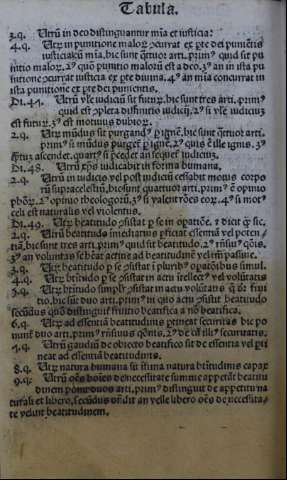 Tabula.
3.q. Utrũ in deo distinguantur mĩa et iusticia:
4.q. Utr̃ in punitione maloꝝ ꝯcurrat ex ꝑte dei puniẽtis
iusticia cũ mĩa, hic sunt q̃tuor arti. prim⁹ quid sit pu
nitio maloꝝ, 2⁹ quo punitio maloꝝ est a deo. 3⁹ an in ista pu
nitione ꝯcurrat iusticia ex ꝑte diuina. 4⁹ an mĩa concurrat in
ista punitione ex ꝑte dei punientis.
Di.47. Utrũ vl̃e iudiciũ sit futuꝝ, hic sunt tres arti. prim⁹
quid est ꝯpleta distinctio iudicij. 2⁹ si vl̃e iudiciũ
est futuꝝ. 3⁹ est motiuus dubioꝝ.
2.q. Utr̃ mũdus sit purgand⁹ ꝑ ignẽ, hic sunt q̃tuor arti.
prim⁹ si mũdus purget̃ ꝑ ignẽ. 2⁹ quis ẽ ille ignis. 3⁹
q̃tus ascendet. quart⁹ si p̃cedet an sequet̃ iudiciũ.
Di.48. Utrũ xp̃s iudicabit in forma humana.
2.q. Utrũ in iudicio vel post iudiciũ cessabit motus corpo
rũ supracelestiũ, hic sunt quattuor arti. prim⁹ ẽ opinio
ph̃oꝝ. 2⁹ opinio theologoꝝ. 3⁹ si valent rões eoꝝ. 4⁹ si mot⁹
celi est naturalis vel violentus.
Di.49. Utr̃ beatitudo ꝯsistat ꝑ se in opatiõe. ⁊ dicit̃ q̃ sic.
2.q. Utrũ beatitudo immediatius ꝑficiat essentiã vel poten
tiã, hic sunt tres arti. prim⁹ quid sit beatitudo. 2⁹ r̃nsiu⁹ q̃õis.
3⁹ an voluntas se habeat actiue ad beatitudinẽ vel mr̃ passiue.
3.q. Utr̃ beatitudo ꝑ se ꝯsistat ĩ plurib⁹ opatiõibus simul.
4.q. Utr̃ bt̃itudo ꝑ se ꝯsistat in actu ĩtellect⁹ vel volũtatis
5.q. Utr̃ bt̃itudo simplr̃ ꝯsistat in actu volũtatis q̃ dr̃ frui
tio, hic sũt duo arti. prim⁹ in quo actu ꝯsistit beatitudo
secũdus quo distinguit̃ fruitio beatifica a nõ beatifica.
6.q. Utr̃ ad essentiã beatitudinis ꝑtineat securitas hic po
nunt̃ duo arti. prim⁹ r̃nsiuus q̃õnis, 2⁹ de cã ill⁹ securitatis.
7.q. Utrũ gaudiũ de obiecto beatifico sit de essentia vel ꝑti
neat ad essentiã beatitudinis.
8.q. Utr̃ natura humana sit ĩfima natura bt̃itudinis capax
9.q. Utrũ oẽs hoĩes de necessitate summe appetãt beatitu
dinem ponũt̃ duo arti. prim⁹ distinguit de appetitu na
turali et libero, secũdus oñdit an velle libero oẽs de necessita⸗
te velint beatitudinem.